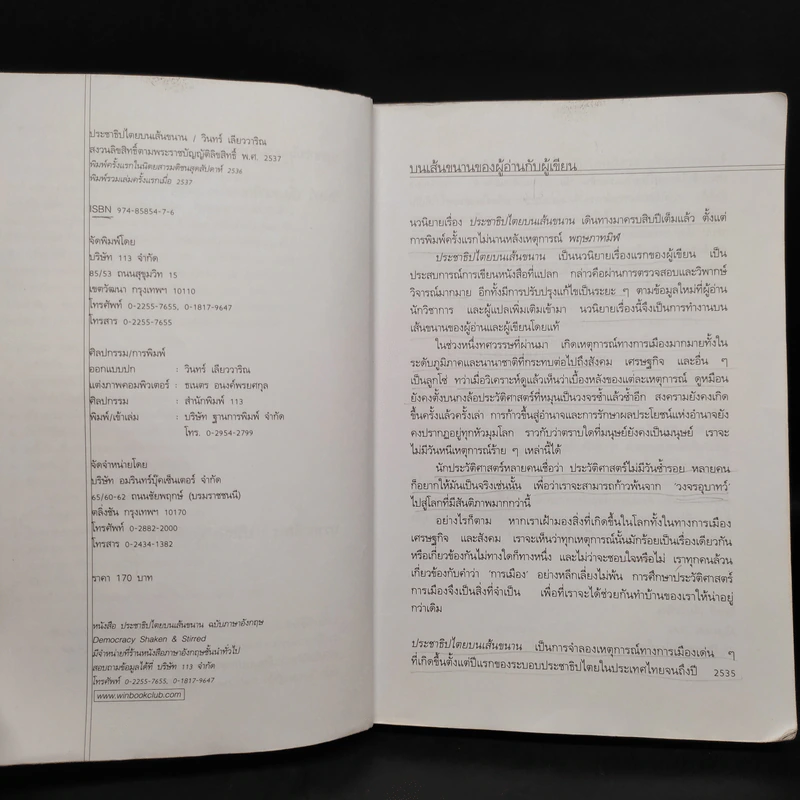 ประชาธิปไตยบนเส้นขนาน / วินทร์ เลียววาริณ
สงวนลิขสิทธิ์ตามพระราชบัญญัติลิขสิทธิ์ พ.ศ. 2537
พิมพ์ครั้งแรกในนิตยสารมติชนสุดสัปดาห์ 2536
พิมพ์รวมเล่มครั้งแรกเมื่อ 2537
ISBN 974-85854-7-6
จัดพิมพ์โดย
บริษัท 113 จำกัด
85/53 ถนนสุขุมวิท 15
เขตวัฒนา กรุงเทพฯ 10110
โทรศัพท์ 0-2255-7655, 0-1817-9647
โทรสาร 0-2255-7655
ศิลปกรรม/การพิมพ์
ออกแบบปก : วินทร์ เลียววาริณ
แต่งภาพคอมพิวเตอร์ : ธเนตร อนงค์พรยศกุล
ศิลปกรรม : สำนักพิมพ์ 113
พิมพ์/เข้าเล่ม : บริษัท ฐานการพิมพ์ จำกัด
โทร. 0-2954-2799
จัดจำหน่ายโดย
บริษัท อมรินทร์บุ๊คเซ็นเตอร์ จำกัด
65/60-62 ถนนชัยพฤกษ์ (บรมราชชนนี)
ตลิ่งชัน กรุงเทพฯ 10170
โทรศัพท์ 0-2882-2000
โทรสาร 0-2434-1382
ราคา 170 บาท
หนังสือ ประชาธิปไตยบนเส้นขนาน ฉบับภาษาอังกฤษ
Democracy Shaken & Stirred
มีจำหน่ายที่ร้านหนังสือภาษาอังกฤษชั้นนำทั่วไป
สอบถามข้อมูลได้ที่ บริษัท 113 จำกัด
โทรศัพท์ 0-2255-7655, 0-1817-9647
www.winbookclub.com
บนเส้นขนานของผู้อ่านกับผู้เขียน
นวนิยายเรื่อง ประชาธิปไตยบนเส้นขนาน เดินทางมาครบสิบปีเต็มแล้ว ตั้งแต่
การพิมพ์ครั้งแรกไม่นานหลังเหตุการณ์ พฤษภาทมิฬ
ประชาธิปไตยบนเส้นขนาน เป็นนวนิยายเรื่องแรกของผู้เขียน เป็น
ประสบการณ์การเขียนหนังสือที่แปลก กล่าวคือผ่านการตรวจสอบและวิพากษ์
วิจารณ์มากมาย อีกทั้งมีการปรับปรุงแก้ไขเป็นระยะ ๆ ตามข้อมูลใหม่ที่ผู้อ่าน
นักวิชาการ และผู้แปลเพิ่มเติมเข้ามา นวนิยายเรื่องนี้จึงเป็นการทำงานบน
เส้นขนานของผู้อ่านและผู้เขียนโดยแท้
ในช่วงหนึ่งทศวรรษที่ผ่านมา เกิดเหตุการณ์ทางการเมืองมากมายทั้งใน
ระดับภูมิภาคและนานาชาติที่กระทบต่อไปถึงสังคม เศรษฐกิจ และอื่น ๆ
เป็นลูกโซ่ ทว่าเมื่อวิเคราะห์ดูแล้วเห็นว่าเบื้องหลังของแต่ละเหตุการณ์ ดูหมือน
ยังคงตั้งบนกงล้อประวัติศาสตร์ที่หมุนเป็นวงจรซ้ำแล้วซ้ำอีก สงครามยังคงเกิด
ขึ้นครั้งแล้วครั้งเล่า การก้าวขึ้นสู่อำนาจและการรักษาผลประโยชน์แห่งอำนาจยัง
คงปรากฏอยู่ทุกหัวมุมโลก ราวกับว่าตราบใดที่มนุษย์ยังคงเป็นมนุษย์ เราจะ
ไม่มีวันหนีเหตุการณ์ร้าย ๆ เหล่านี้ได้
นักประวัติศาสตร์หลายคนเชื่อว่า ประวัติศาสตร์ไม่มีวันซ้ำรอย หลายคน
ก็อยากให้มันเป็นจริงเช่นนั้น เพื่อว่าเราจะสามารถก้าวพ้นจาก 'วงจรอุบาทว์'
ไปสู่โลกที่มีสันติภาพมากกว่านี้
อย่างไรก็ตาม หากเราเฝ้ามองสิ่งที่เกิดขึ้นในโลกทั้งในทางการเมือง
เศรษฐกิจ และสังคม เราจะเห็นว่าทุกเหตุการณ์นั้นมักร้อยเป็นเรื่องเดียวกัน
หรือเกี่ยวข้องกันไม่ทางใดก็ทางหนึ่ง และไม่ว่าจะชอบใจหรือไม่ เราทุกคนล้วน
เกี่ยวข้องกับคำว่า 'การเมือง' อย่างหลีกเลี่ยงไม่พ้น การศึกษาประวัติศาสตร์
การเมืองจึงเป็นสิ่งที่จำเป็น เพื่อที่เราจะได้ช่วยกันทำบ้านของเราให้น่าอยู่
กว่าเดิม
ประชาธิปไตยบนเส้นขนาน เป็นการจำลองเหตุการณ์ทางการเมืองเด่น ๆ
ที่เกิดขึ้นตั้งแต่ปีแรกของระบอบประชาธิปไตยในประเทศไทยจนถึงปี 2535